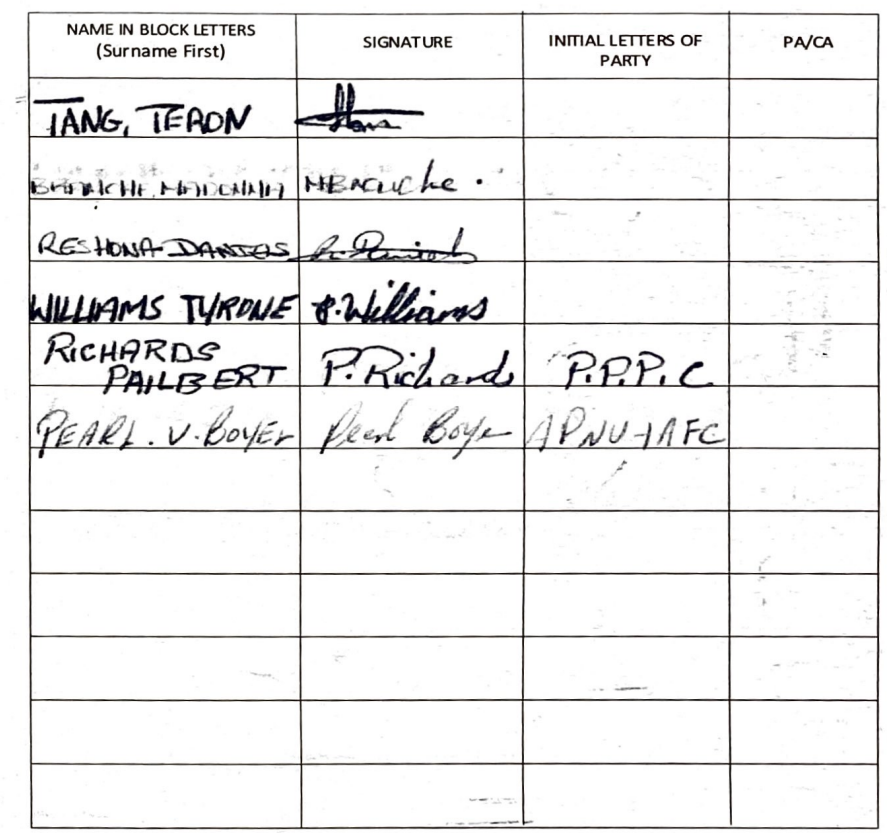 NAME IN BLOCK LETTERS
(Surname First)
SIGNATURE
INITIAL LETTERS OF
PARTY
PA/CA
TANG, TERON
MADONNA
RESHONA DANIELS
WILLIAMS TYRONE T. Williams
RICHARDS
PAILBERT P. Richards P.P.P.C
PEARL. V. BOYER Pearl Boye APNU+AFC